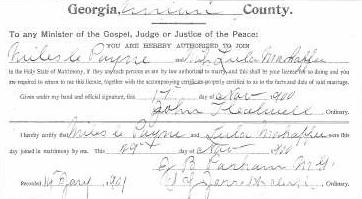 Georgia, County.
To any Minister of the Gospel, Judge or Justice of the Peace:
YOU ARE HEREBY AUTHORIZED TO JOIN
Miles Payne and Miss Lula Mahaffee
in the Holy State of Matrimony, if they are such persons as are by law authorized to marry and this shall be your license for so doing and you
are required to return to me this license, together with the accompanying certificate properly certified to as to the facts and date of said marriage.
Given under my hand and official signature, this 17 day of Nov 1900
John Ordinary.
I hereby certify that Miles Payne and Lula Mahaffee were this
day joined in matrimony by me. This 29 day of Nov 1900
B Parham M.G.
Recorded 1901 Ordinary.